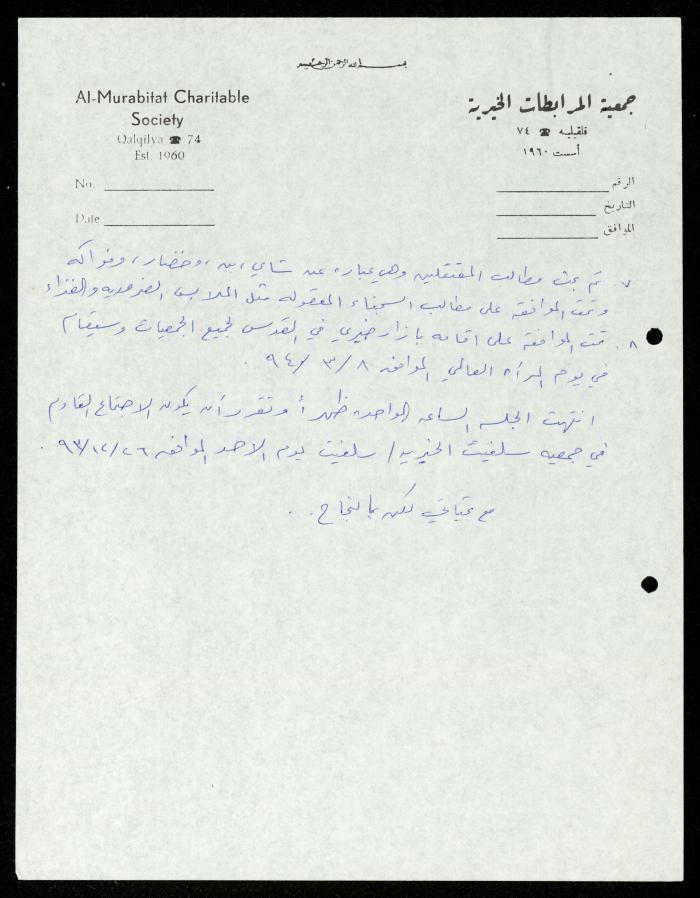 بسم الله الرحمن الرحيم
Al-Murabitat Charitable
Society
Qalqilya ☎ 74
Est. 1960
No.
Date
جمعية المرابطات الخيرية
قلقيليه ☎ ٧٤
أسست ١٩٦٠
الرقم
التاريخ
الموافق
٧ تم بحث مطالب المعتقلين وهي عباره عن شاي ، بن ، وخضار ، وفواكه
وتمت الموافقه على مطالب السجناء المعقوله مثل الملابس الضروريه والغذاء
٨ . تمت الموافقه على اقامه بازار خيري في القدس لجميع الجمعيات وسيقام
في يوم المرأه العالمي الموافق ٨ / ٣ / ٩٤ .
انتهت الجلسه الساعه الواحده ظهراً وتقرر أن يكون الاجتماع القادم
في جمعيه سلفيت الخيريه / سلفيت يوم الاحد الموافق ٢٦ / ١٢ / ٩٣ .
مع تحياتي لكن بالنجاح . .